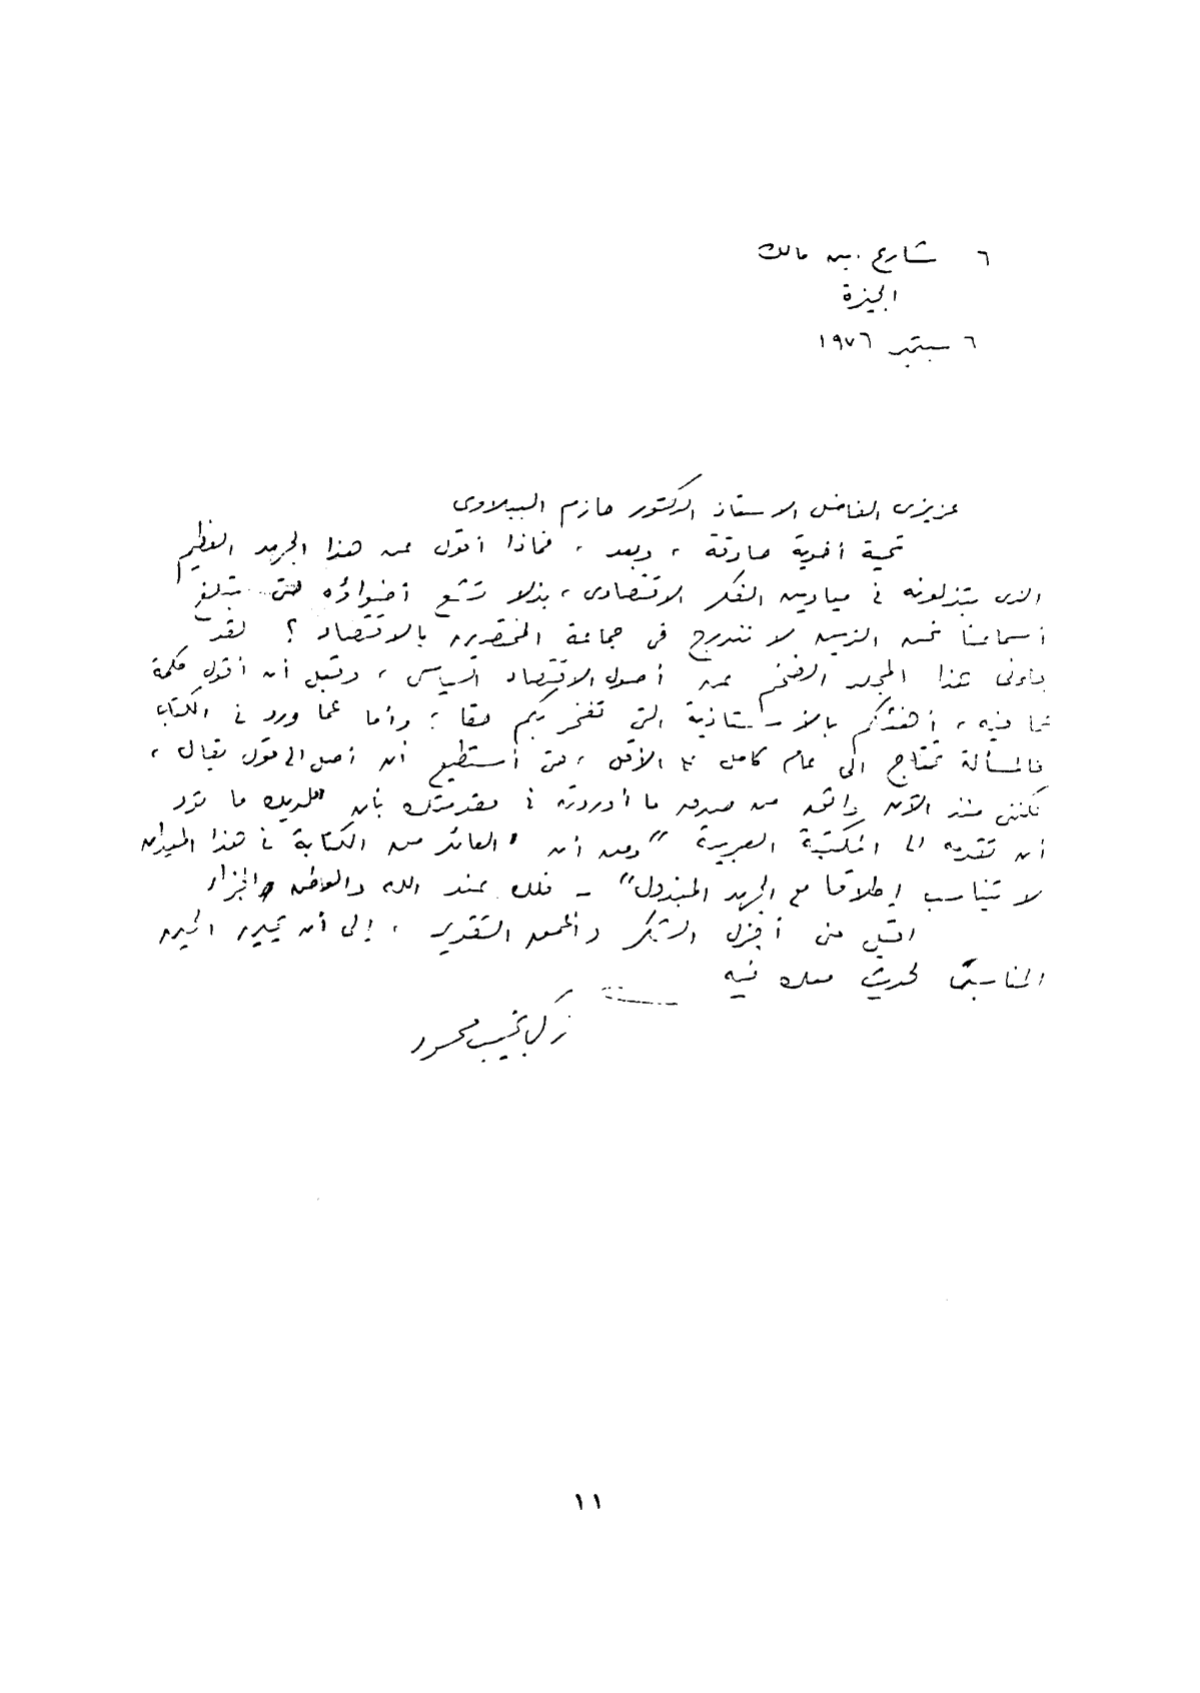 ٦ شارع ابن مالك
الجيزة
٦ سبتمبر ١٩٧٦
عزيزى الفاضل الاستاذ الدكتور حازم الببلاوى
تحية أخوية صادقة ، وبعد ، فماذا أقول عن هذا الجهد العظيم
الذى تبذلونه فى ميادين الفكر الاقتصادى ، بذلا تشع أضواؤه حتى تبلغ
أسماعنا نحن الذين لا نندرج فى جماعة المختصين بالاقتصاد ؟ لقد
جاءنى هذا المجلد الضخم عن أصول الاقتصاد السياسى ، وقبل أن أقول كلمة
عما فيه ، أهنئكم بالأستاذية التى تفخر بكم حقا ؛ وأما عما ورد فى الكتاب
فالمسألة تحتاج الى عام كامل على الأقل ، حتى أستطيع أن أصل الى قول يقال ،
لكننى منذ الآن واثق من صدق ما أوردته فى مقدمتك بأن "لديك ما تود
أن تقدمه الى المكتبة العربية" ومن أن "العائد من الكتابة فى هذا الميدان
لا تتناسب إطلاقا مع الجهد المبذول" - فلك عند الله والوطن الجزاء
اقبل منى أجزل الشكر وأعمق التقدير ، إلى أن تحين الحين
المناسبة لحديث معك فيه
زكى نجيب محمود
١١